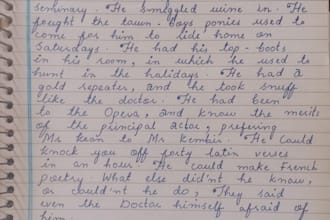 seminary. He smuggled wine in. He
fought the town-boys ponies used to
come for him to ride home on
Saturdays. He had his top-boots
in his room, in which he used to
hunt in the holidays. He had a
gold repeater, and he took snuff
like the doctor. He had been
to the Opera, and know the merits
of the principal actor, prefering
Mr Kean to Mr Kemble. He could
knock you off forty latin verses
in an hour He could make French
poetry What else did'nt he know,
or could'nt he do? They said
even the Doctor himself afraid of
him.